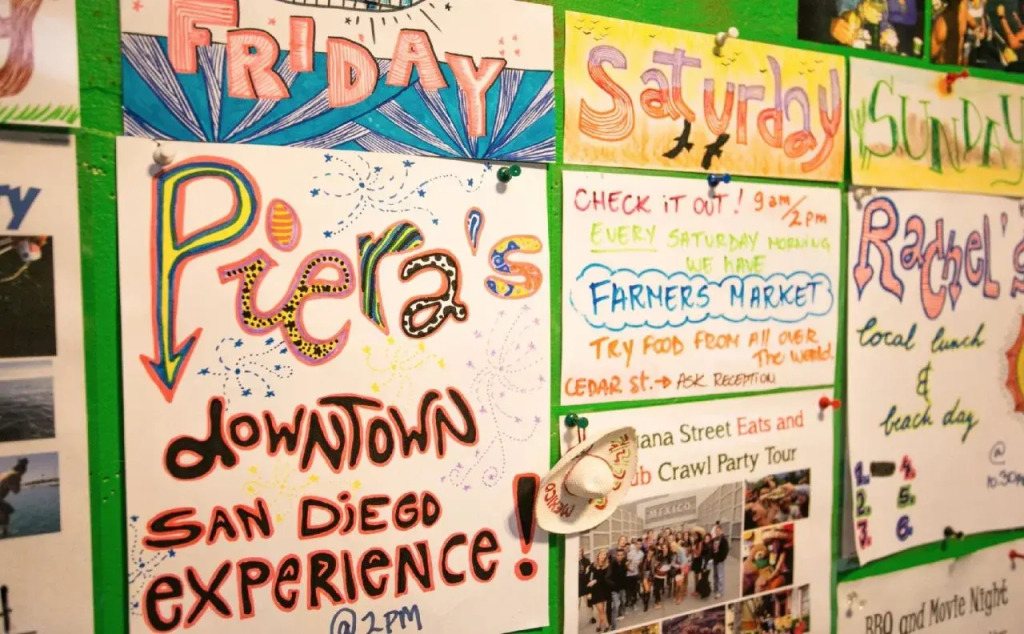 FRIDAY
Piera's
DOWNTOWN
SAN DiEGO
EXPERiENCE!
@ 2PM
Saturday
CHECK iT OUT! 9am/2pm
EVERY SATURDAY MORNING
WE HAVE
FARMERS MARKET
TRY FOOD FROM All OVER
The World.
CEDAR St. → ASK RECEPTION
Street Eats and
Crawl Party Tour
MEXICO
SUNDAY
Rachel's
local lunch
&
beach day
@
10.30
1.
2.
3.
4.
5.
6.
BBQ and Movie Night